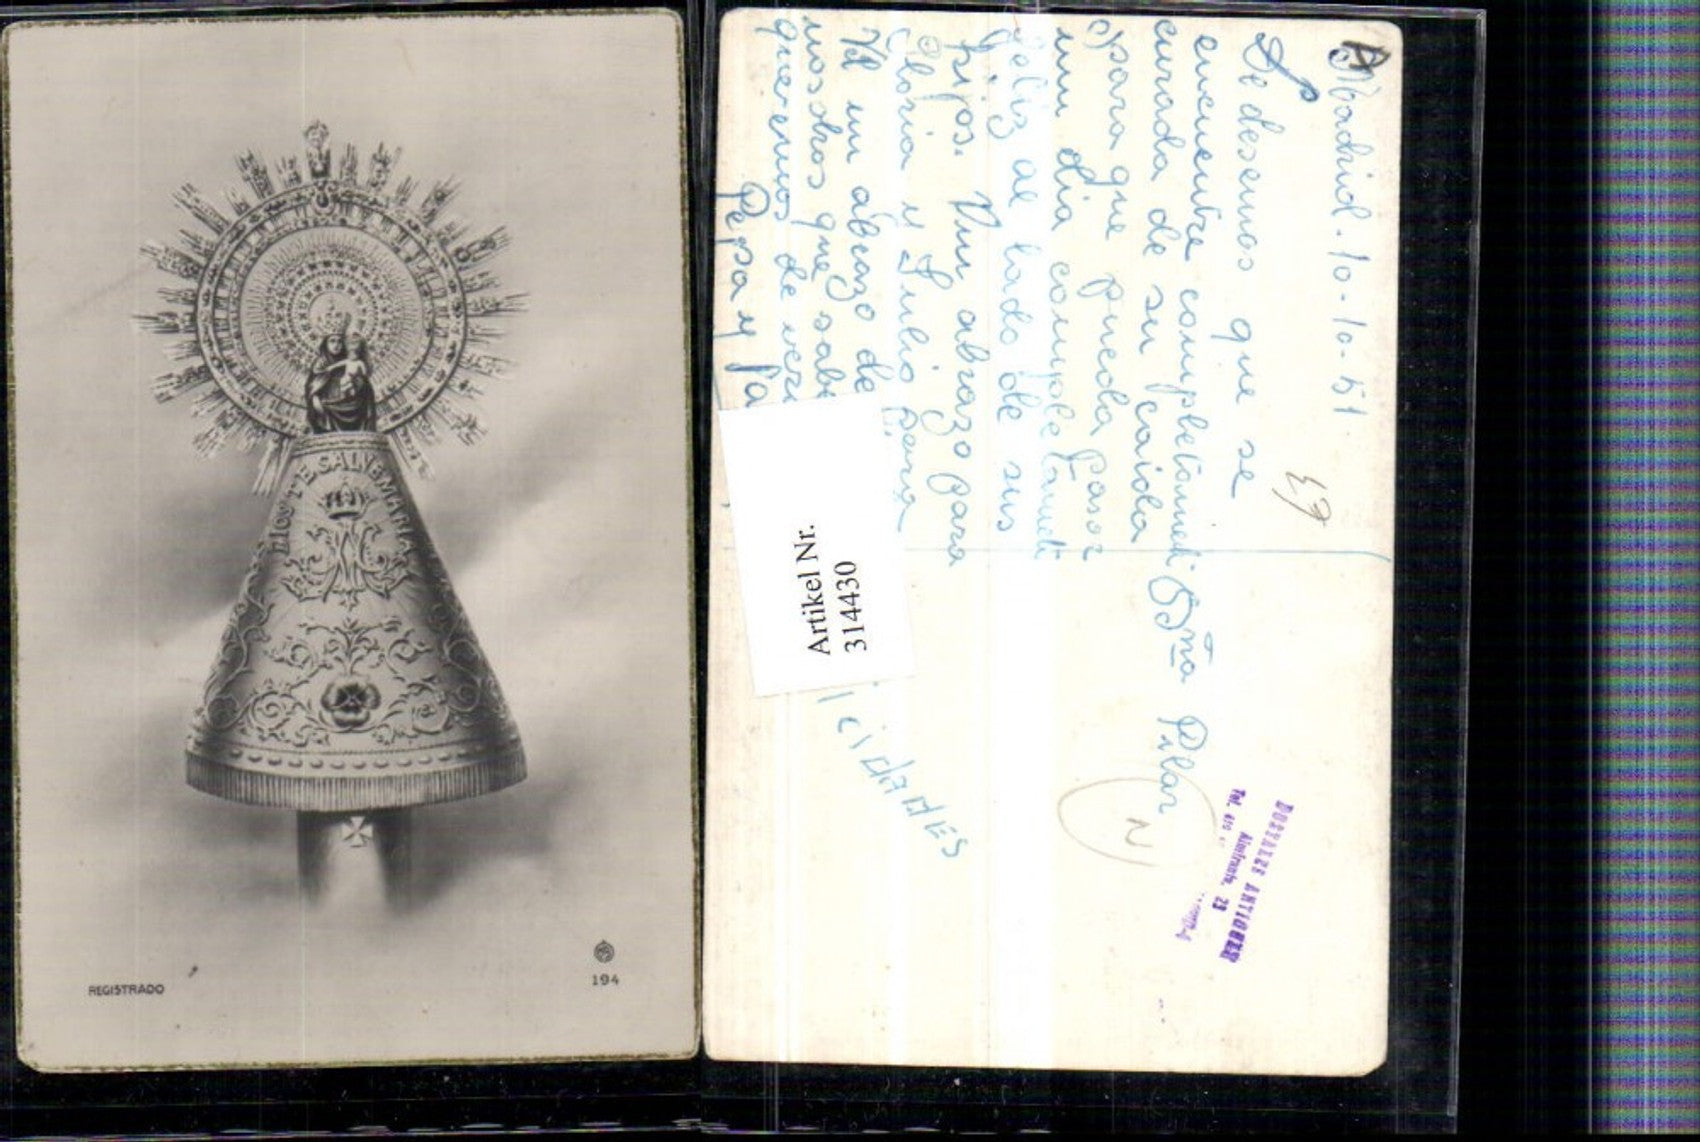 DIOS TE SALVE MARIA
REGISTRADO
194
Madrid. 10-10-51.
Le deseamos que se
encuentre completament
curada de su caida
para que pueda pasar
un dia completament
feliz al lado de sus
hijos. Un abrazo para
Gloria y Julio
Vd un abrazo de
nosotros que sabe
queremos de ver
Pepa y Pa
Dña Pilar
N
Artikel Nr.
314430